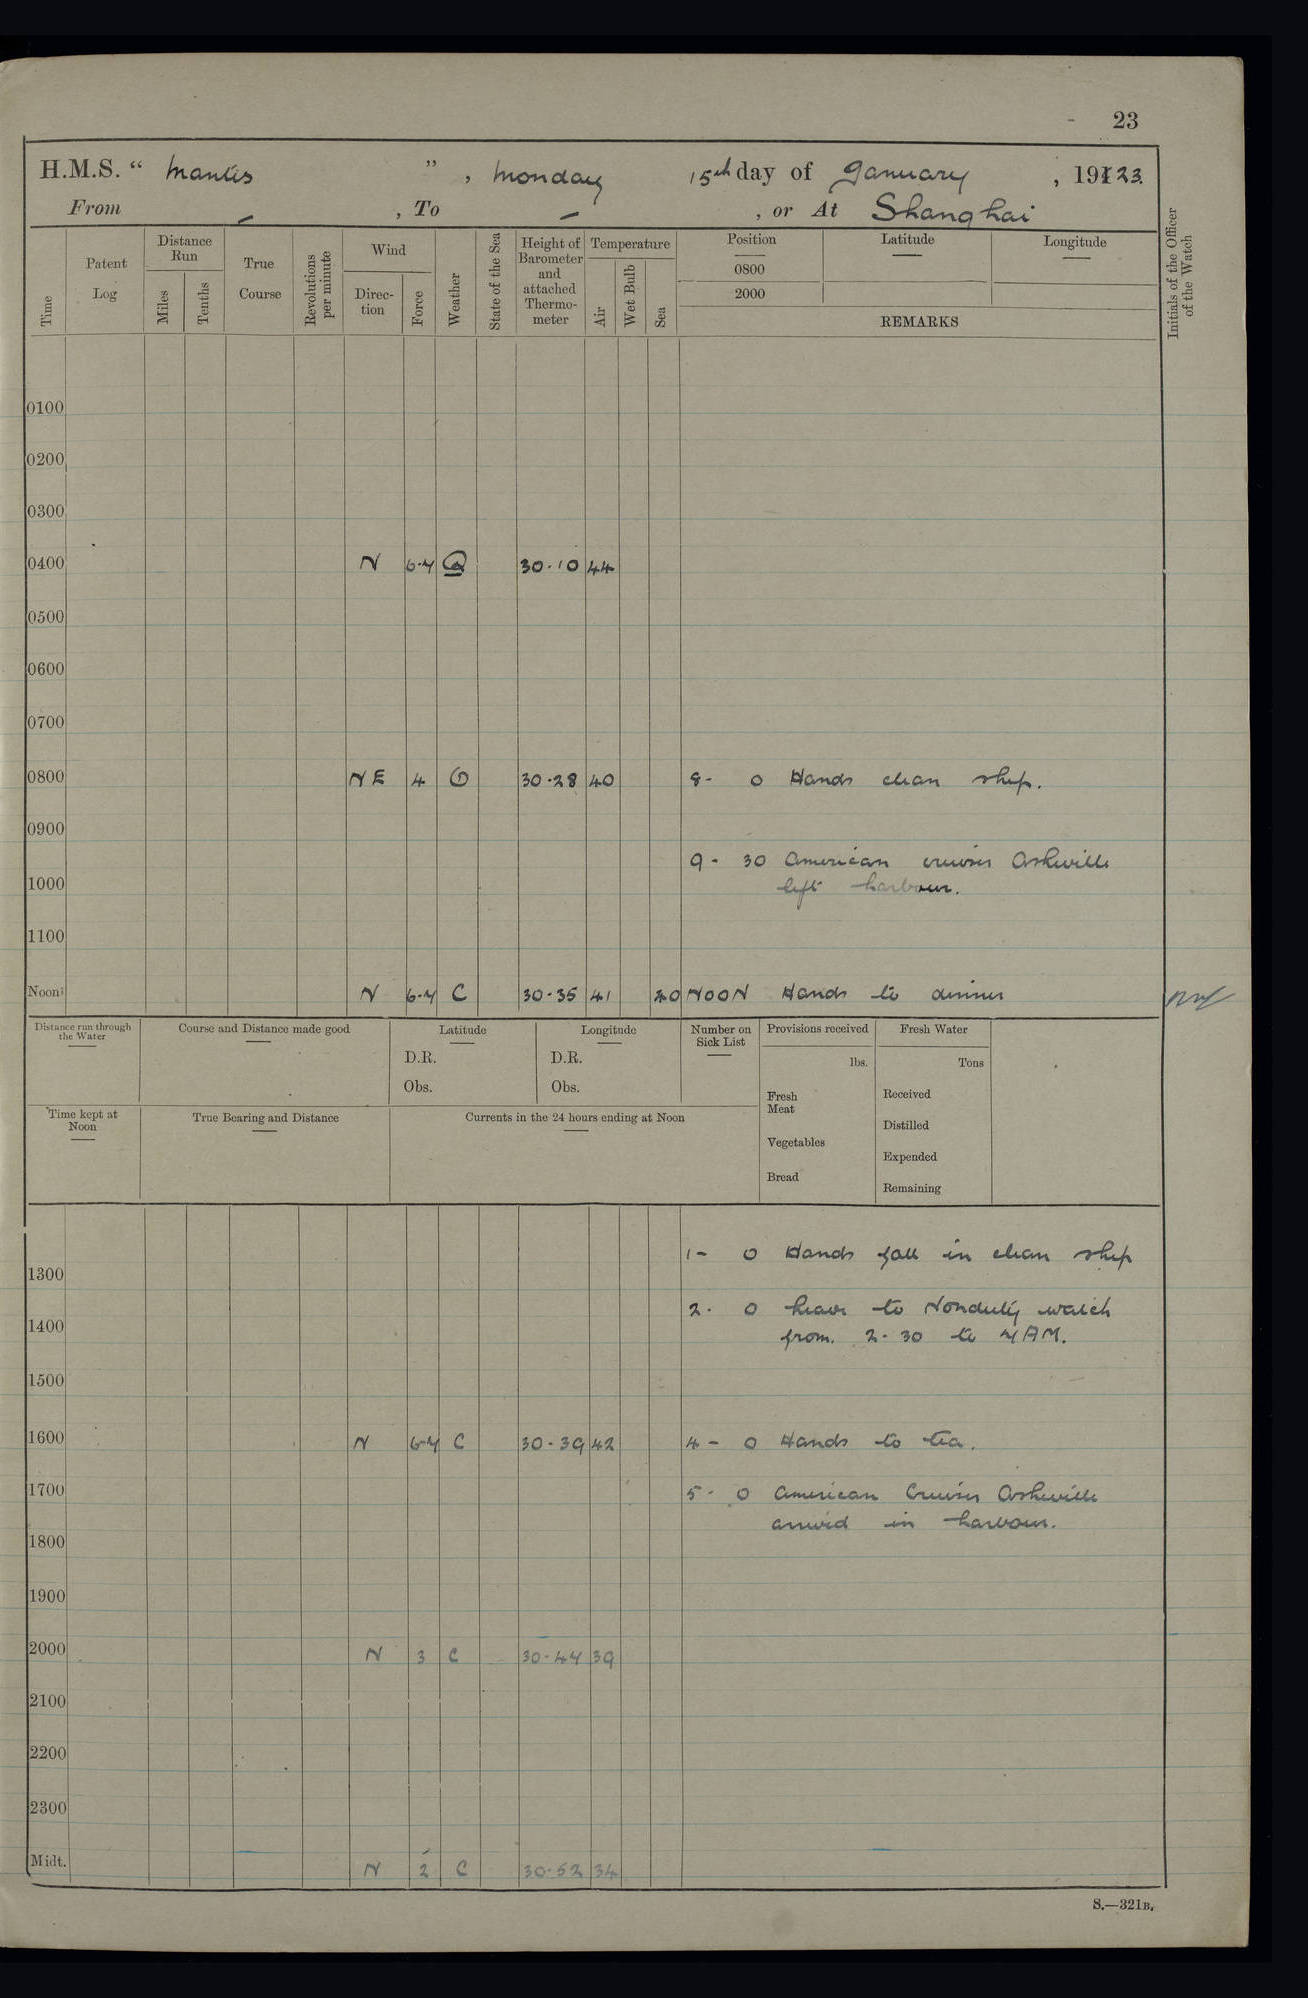 23
H.M.S. “ Mantis ” , Monday 15th day of January , 19123.
From – , To – , or At Shanghai
Time
Patent Log
Distance Run
Miles
Tenths
True Course
Revolutions per minute
Wind
Direction
Force
Weather
State of the Sea
Height of Barometer and attached Thermometer
Temperature
Air
Wet Bulb
Sea
Position
0800
2000
Latitude
Longitude
REMARKS
Initials of the Officer of the Watch
0100
0200
0300
0400 N 6-7 30.10 44
0500
0600
0700
0800 NE 4 O 30.28 40 8- 0 Hands clean ship.
0900
9- 30 American cruiser Asheville
1000 left harbour.
1100
Noon N 6-7 C 30.35 41 40 NOON Hands to dinner
Distance run through the Water
Course and Distance made good
Latitude
D.R.
Obs.
Longitude
D.R.
Obs.
Number on Sick List
Provisions received
lbs.
Fresh Meat
Vegetables
Bread
Fresh Water
Tons
Received
Distilled
Expended
Remaining
Time kept at Noon
True Bearing and Distance
Currents in the 24 hours ending at Noon
1- 0 Hands fall in clean ship
1300
2. 0 leave to Nonduty watch
1400 from. 2.30 to 7 AM.
1500
1600 N 6-7 C 30.39 42 4- 0 Hands to tea.
1700 5- 0 American Cruiser Asheville
arrived in harbour.
1800
1900
2000 N 3 C 30.47 39
2100
2200
2300
Midt. N 2 C 30.52 34
S.—321B.